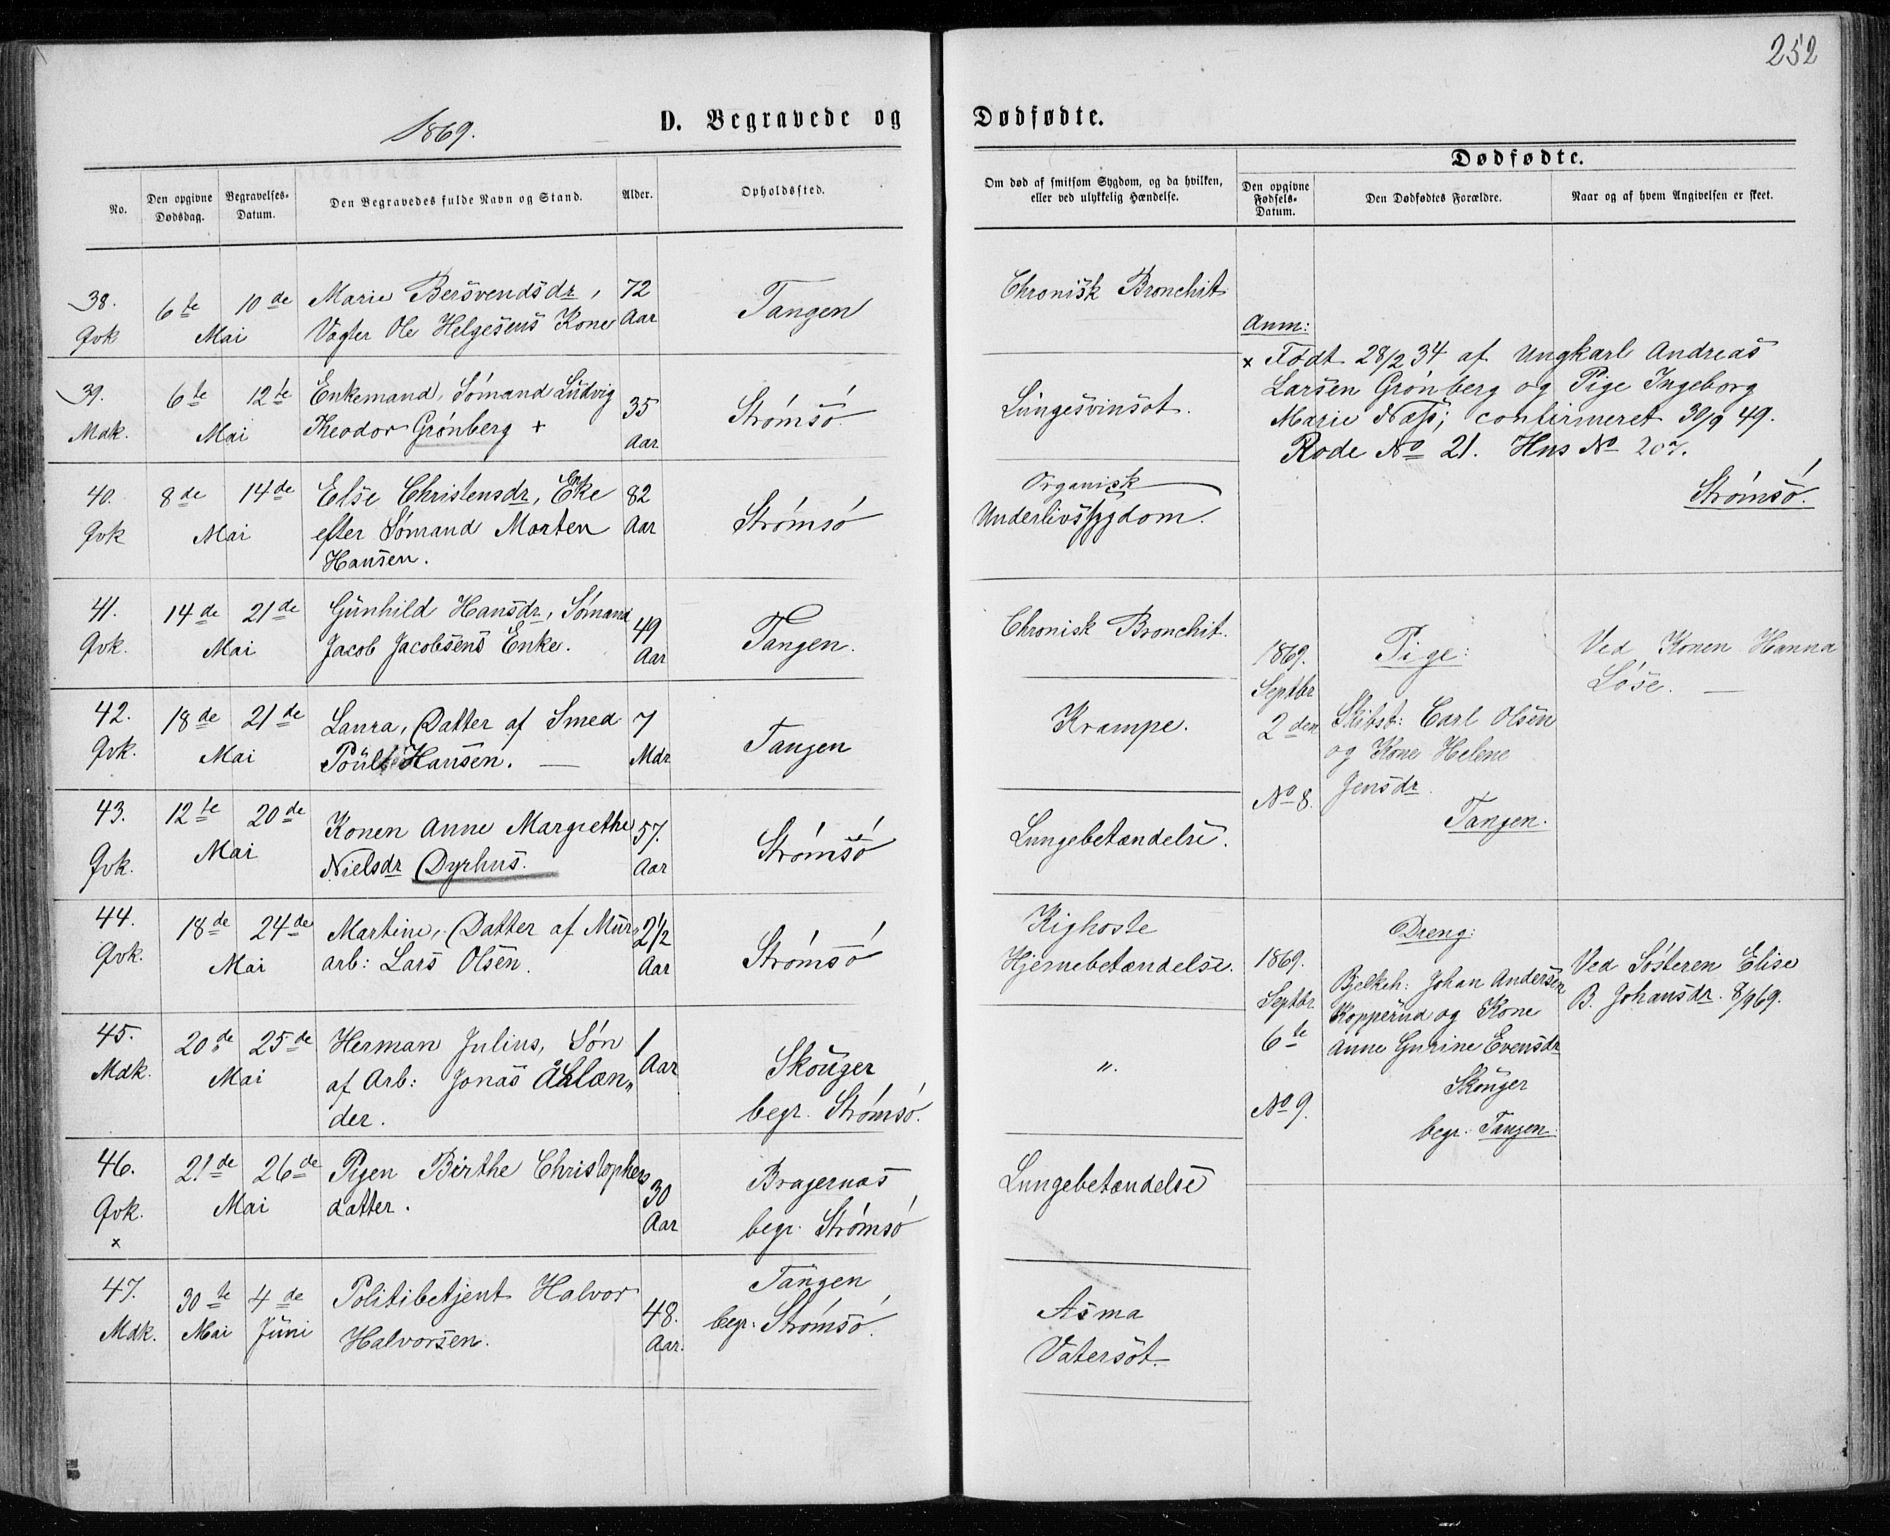 252
1869.
D. Begravede og Dødfødte.
Dødfødte.
No.
Den opgivne Dødsdag.
Begravelses-Datum.
Den Begravedes fulde Navn og Stand.
Alder.
Opholdssted.
Om død af smitsom Sygdom, og da hvilken, eller ved ulykkelig Hændelse.
Den opgivne Fødsels-Datum.
Den Dødfødtes Forældre.
Naar og af hvem Angivelsen er skeet.
38. Qvk
6te 10de Mai
Marie Bersvendsdr,
Vægter Ole Helgesens Kone
72 Aar
Tangen
Chronisk Bronchit
39. Mdk.
6te 12te Mai
Enkemand, Sömand Ludvig
Theodor Grönberg +
35 Aar
Strömsö.
Lungesvinsot.
Anm:
x Födt 28/2 34 af Ungkarl Andreas
Larsen Grönberg og Pige Ingeborg
Marie Næss; confirmeret 30/9 49.
Rode No 21. Hus No 207.
Strömsö.
40. Qvk
8de 14de Mai
Else Christensdr, Enke
efter Sömand Morten
Hansen.
82 Aar
Strömsö
Organisk
Underlivssygdom.
41. Qvk.
14de 21de Mai
Gunhild Hansdr, Sömand
Jacob Jacobsens Enke.
49 Aar
Tangen.
Chronisk Bronchit.
42. Qvk.
18de 21de Mai
Laura, Datter af Smed
Poul Hansen. —
7 Mdr
Tangen
Krampe.
1869.
Septbr
2den
No 8.
Pige:
Skibst: Carl Olsen
og Kone Helene
Jensdr.
Tangen.
Ved Konen Hanna
Löse. —
43. Qvk.
12te 20de Mai
Konen Anne Margrethe
Nielsdr Dyrhus.
57. Aar
Strömsö
Lungebetændelse.
44. Qvk.
18de 24de Mai
Martine, Datter af Mur„
arb: Lars Olsen.
2 1/2 Aar
Strömsö
Kighoste
Hjernebetændelse.
1869.
Septbr.
6te
No 9.
Dreng:
Bjelkeh: Johan Andersen
Kopperud og Kone
Anne Gurine Evensdr
Skouger
begr. Tangen.
Ved Sösteren Elise
B. Johansdr. 8/9 69.
45. Mdk.
20de 25de Mai
Herman Julius, Sön
af Arb: Jonas Åhlæn„
der.
1 Aar
Skouger
begr. Strömsö.
„.
46. Qvk. x
21de 26de Mai
Pigen Birthe Christophers
datter.
30 Aar
Bragernæs
begr. Strömsö
Lungebetændelse
47. Mdk.
30te Mai 4de Juni
Politibetjent Halvor
Halvorsen.
48. Aar.
Tangen
begr. Strömsö.
Asma
Vatersöt.